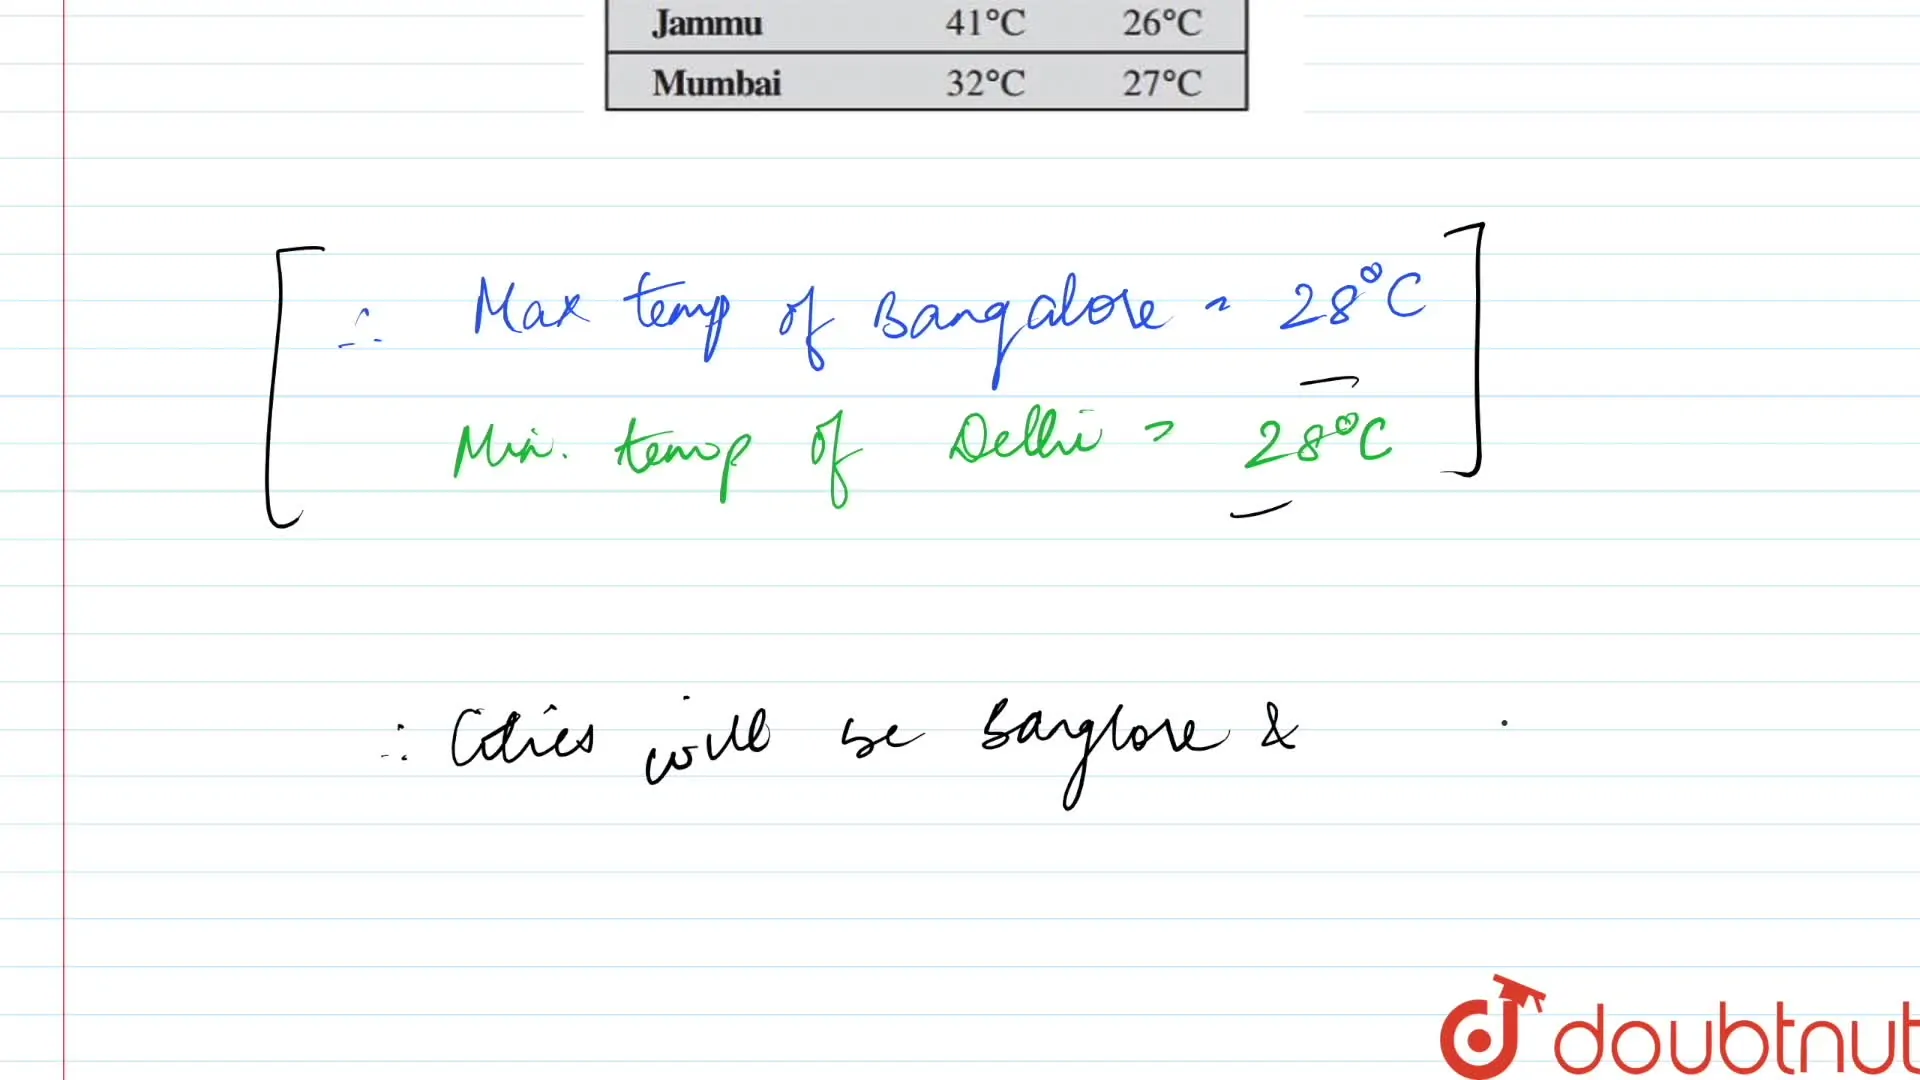 Jammu 41°C 26°C
Mumbai 32°C 27°C
∴ Max temp of Bangalore = 28°C
Min. temp of Delhi = 28°C
∴ Cities will be Banglore &
doubtnut